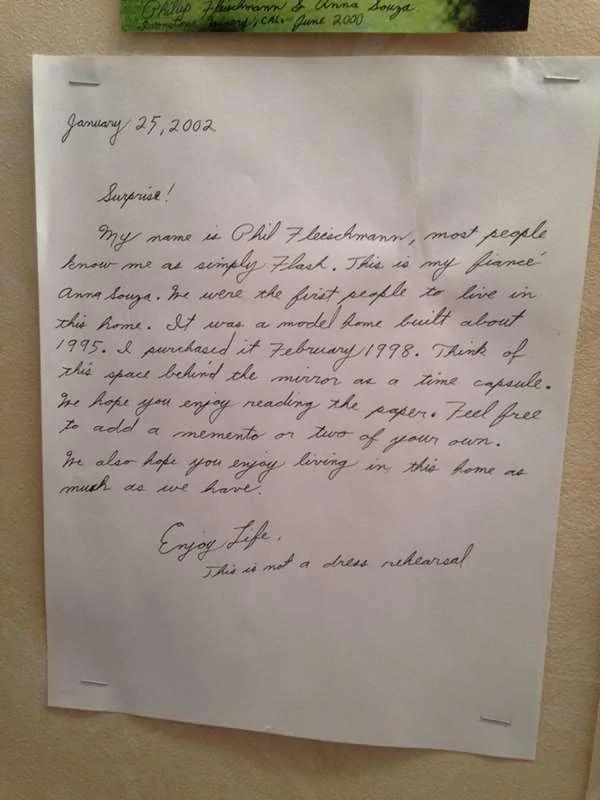 Philip Fleischmann & Anna Souza
January, CAL. June 2000
January 25, 2002
Surprise!
My name is Phil Fleischmann, most people
know me as simply Flash. This is my fiancé
Anna Souza. We were the first people to live in
this home. It was a model home built about
1995. I purchased it February 1998. Think of
this space behind the mirror as a time capsule.
We hope you enjoy reading the paper. Feel free
to add a memento or two of your own.
We also hope you enjoy living in this home as
much as we have.
Enjoy Life.
This is not a dress rehearsal